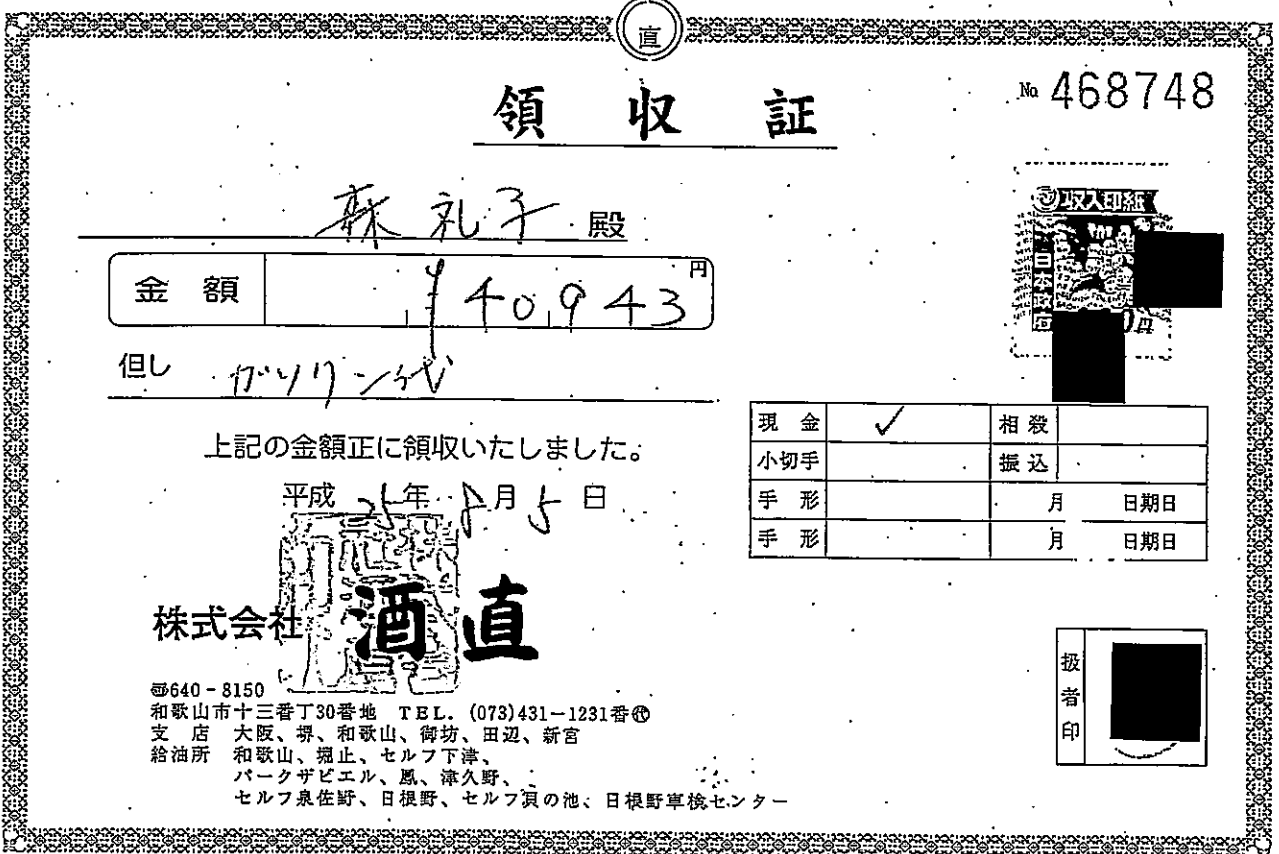 直
領収証
№ 468748
森礼子 殿
収入印紙
金額 ¥40,943円
但し ガソリン代
上記の金額正に領収いたしました。
現金 ✓ 相殺
小切手 振込
手形 月 日期日
手形 月 日期日
平成 25年 8月 5日
株式会社 酒直
〒640-8150
和歌山市十三番丁30番地 TEL. (073)431-1231番㈹
支店 大阪、堺、和歌山、御坊、田辺、新宮
給油所 和歌山、堀止、セルフ下津、
パークザビエル、鳳、津久野、
セルフ泉佐野、日根野、セルフ貝の池、日根野車検センター
扱者印